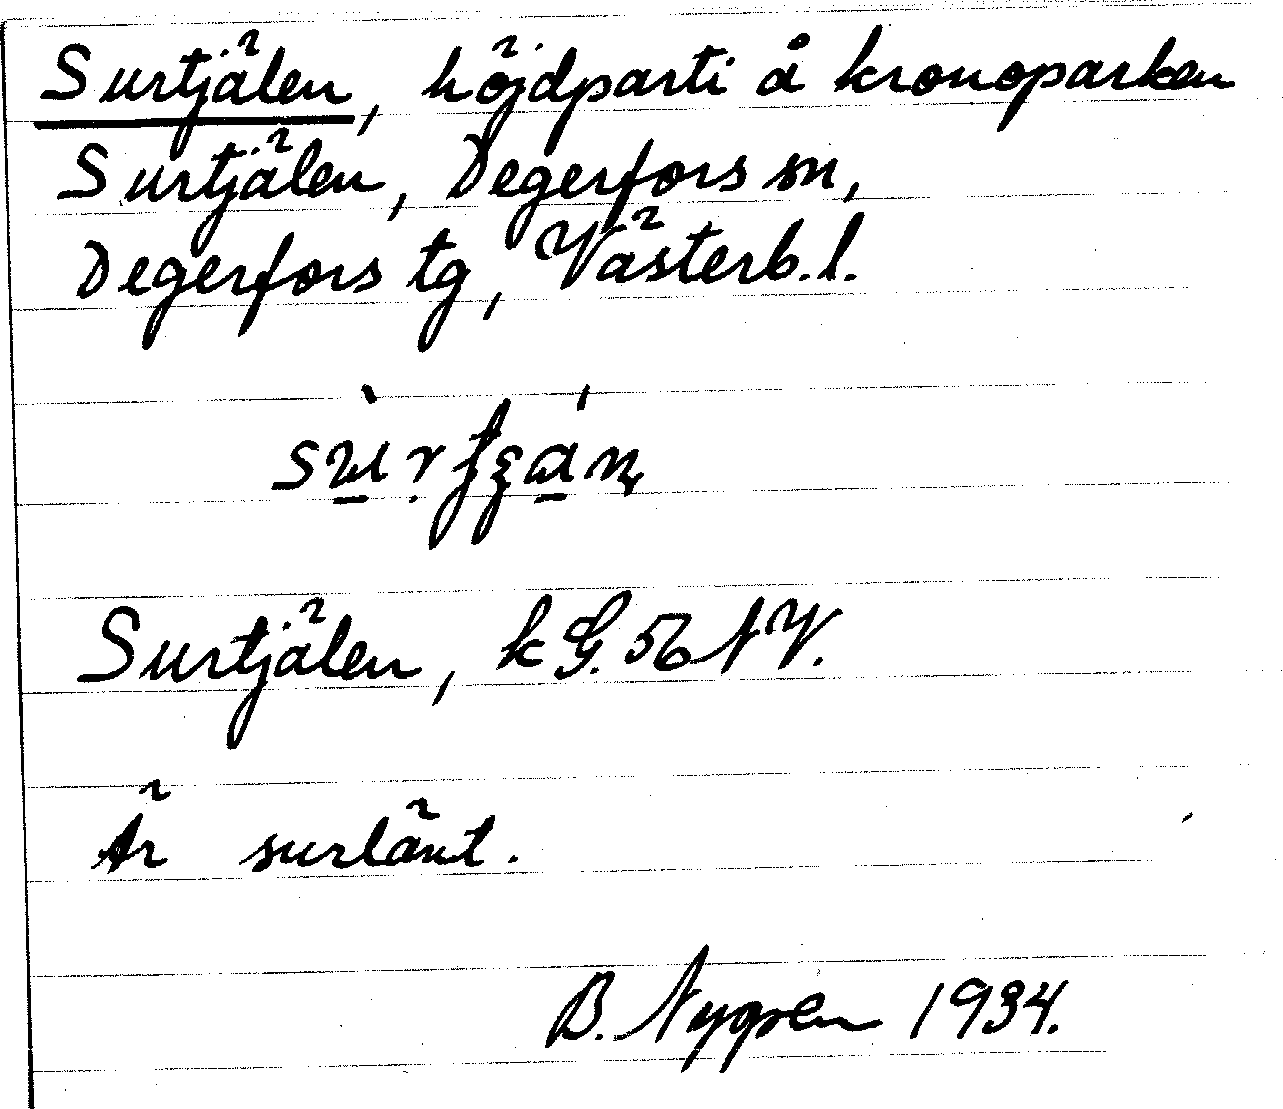 Surtjälen, höjdparti å kronoparken
Surtjälen, Degerfors sn,
Degerfors tg, Västerb. l.
Surtjälen, kG. 56 NV.
Är surlänt.
B. Nygren 1934.